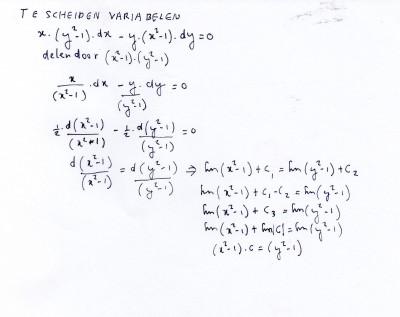 TE SCHEIDEN VARIABELEN
x.(y²-1).dx - y.(x²-1).dy = 0
delen door (x²-1).(y²-1)
x/(x²-1) .dx - y.dy/(y²-1) = 0
½ d(x²-1)/(x²-1) - ½ d(y²-1)/(y²-1) = 0
d(x²-1)/(x²-1) = d(y²-1)/(y²-1) ⇒ ln(x²-1) + C₁ = ln(y²-1) + C₂
ln(x²-1) + C₁ - C₂ = ln(y²-1)
ln(x²-1) + C₃ = ln(y²-1)
ln(x²-1) + ln|C| = ln(y²-1)
(x²-1).C = (y²-1)